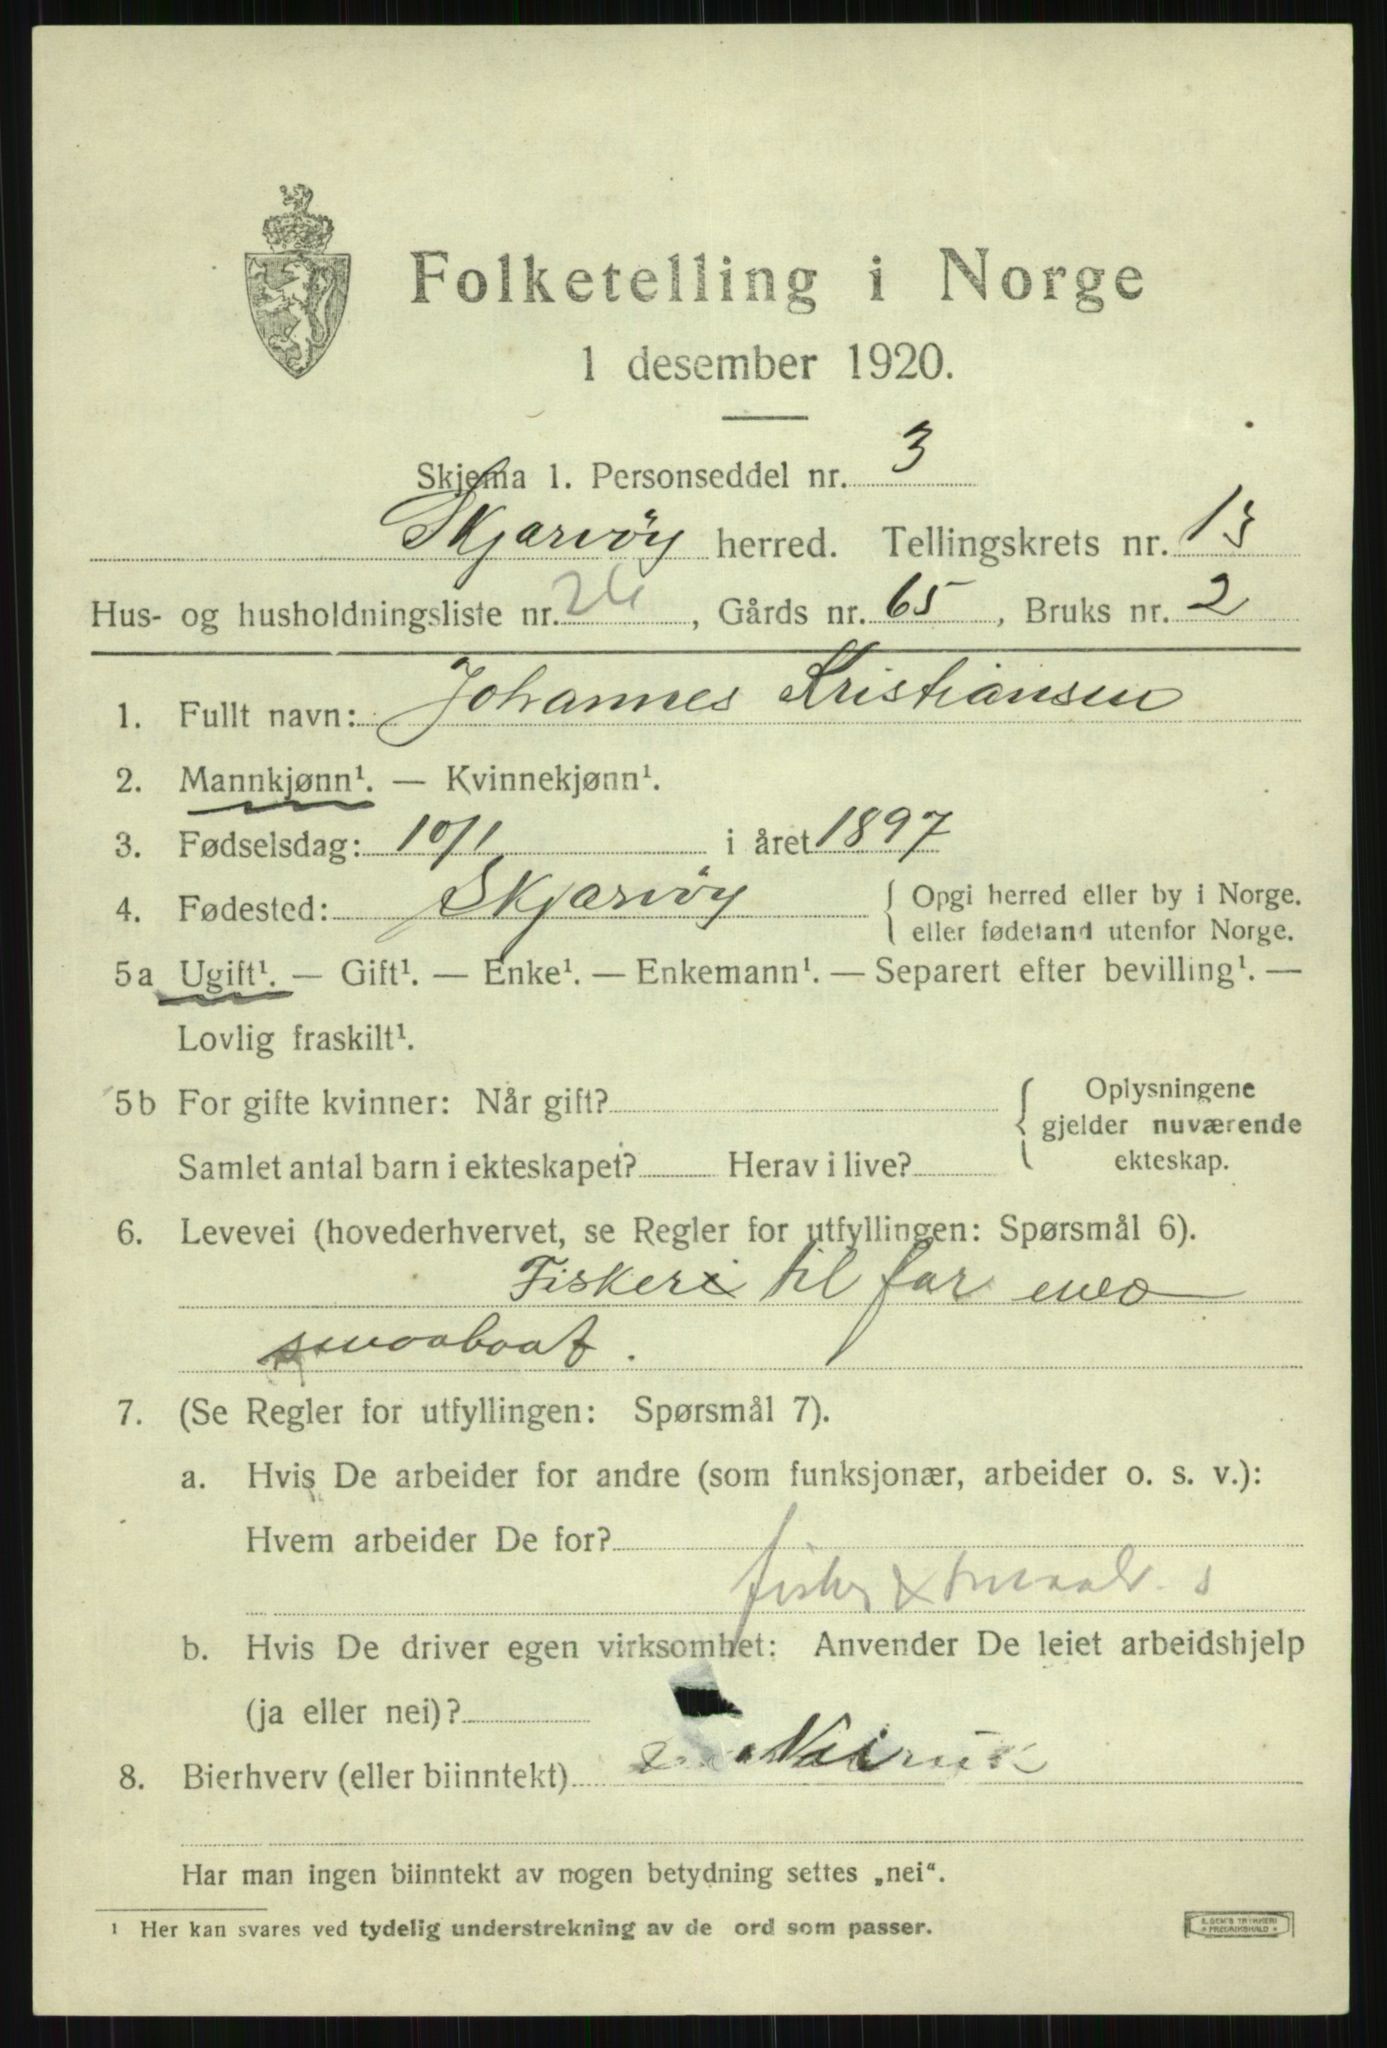 Folketelling i Norge
1 desember 1920.
Skjema 1. Personseddel nr. 3
Skjærvöy herred. Tellingskrets nr. 13
Hus- og husholdningsliste nr. 26, Gårds nr. 65, Bruks nr. 2
1. Fullt navn: Johannes Kristiansen
2. Mannkjønn¹. — Kvinnekjønn¹.
3. Fødselsdag: 10/1 i året 1897
4. Fødested: Skjærvöy { Opgi herred eller by i Norge.
eller fødeland utenfor Norge.
5a Ugift¹. — Gift¹. — Enke¹. — Enkemann¹. — Separert efter bevilling¹. —
Lovlig fraskilt¹.
5b For gifte kvinner: Når gift? { Oplysningene
gjelder nuværende
Samlet antal barn i ekteskapet? Herav i live? ekteskap.
6. Levevei (hovederhvervet, se Regler for utfyllingen: Spørsmål 6).
Fisker til far med
smaabaat.
7. (Se Regler for utfyllingen: Spørsmål 7).
a. Hvis De arbeider for andre (som funksjonær, arbeider o. s. v.):
Hvem arbeider De for?
b. Hvis De driver egen virksomhet: Anvender De leiet arbeidshjelp
(ja eller nei)?
8. Bierhverv (eller biinntekt) Nei
Har man ingen biinntekt av nogen betydning settes „nei“.
¹ Her kan svares ved tydelig understrekning av de ord som passer.